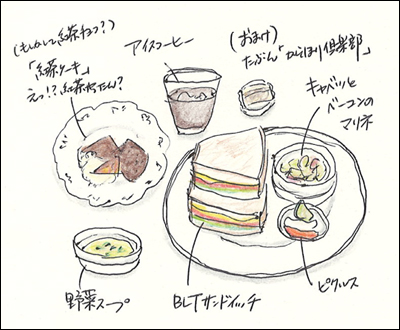 (もしかして紅茶ねっ?)
「紅茶ケーキ」
えっ!?紅茶やったん?
アイスコーヒー
(おまけ)
たぶん「からほり倶楽部」
キャベツと
ベーコンの
マリネ
野菜スープ
BLTサンドイッチ
ピクルス